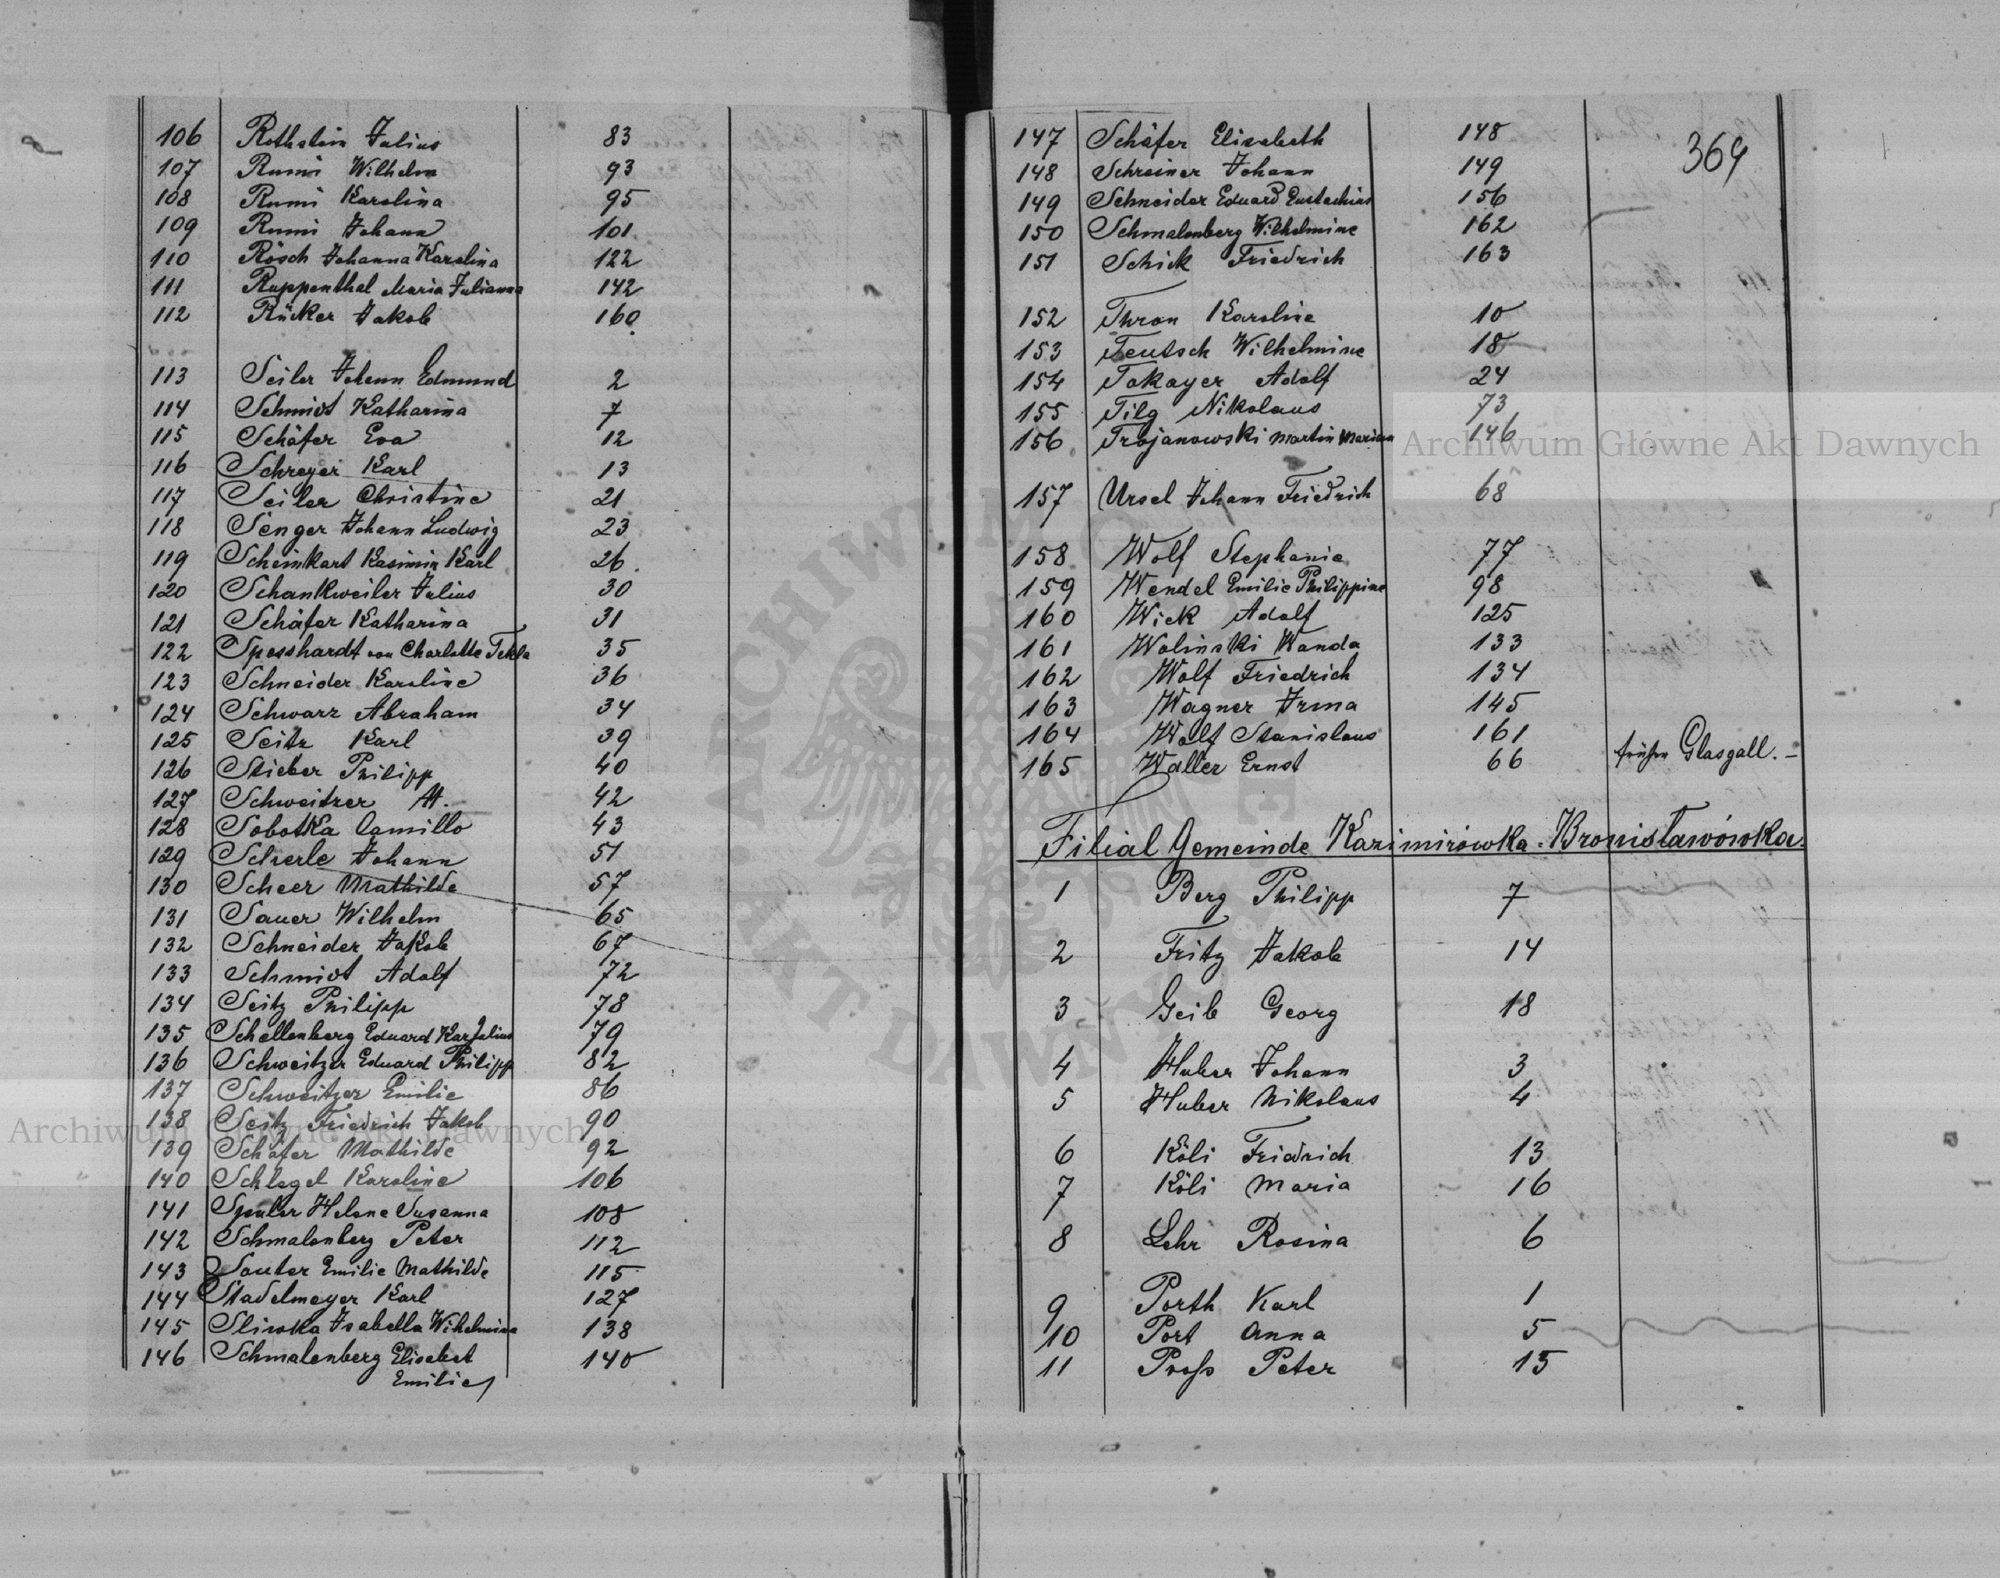 106 Rothstein Julius 83
107 Rumi Wilhelm 93
108 Rumi Karolina 95
109 Rumi Johann 101
110 Rösch Johanna Karolina 122
111 Ruppenthal Maria Julianna 142
112 Rücker Jakob 160
113 Seiler Johann Edmund 2
114 Schmidt Katharina 7
115 Schäfer Eva 12
116 Schreyer Karl 13
117 Seiler Christine 21
118 Senger Johann Ludwig 23
119 Scheinkart Kasimir Karl 26
120 Schankweiler Julius 30
121 Schäfer Katharina 31
122 Spesshardt von Charlotte Tekla 35
123 Schneider Karoline 36
124 Schwarz Abraham 34
125 Seitz Karl 39
126 Stieber Philipp 40
127 Schweitzer 42
128 Sobotka Camillo 43
129 Scherle Johann 51
130 Scheer Mathilde 57
131 Sauer Wilhelm 65
132 Schneider Jakob 67
133 Schmidt Adolf 72
134 Seitz Philipp 78
135 Schellenberg Eduard Karl Julius 79
136 Schweitzer Eduard Philipp 82
137 Schweitzer Emilie 86
138 Seitz Friedrich Jakob 90
139 Schäfer Mathilde 92
140 Schlegel Karoline 106
141 Spuler Helena Susanna 108
142 Schmalenberg Peter 112
143 Sauter Emilie Mathilde 115
144 Stadelmeyer Karl 127
145 Isabella Wilhelmina 138
146 Schmalenberg Elisabet 140
Emilie
369
147 Schäfer Elisabeth 148
148 Schreiner Johann 149
149 Schneider Eduard Eustachius 156
150 Schmalenberg Wilhelmine 162
151 Schick Friedrich 163
152 Thron Karoline 10
153 Teutsch Wilhelmine 18
154 Tokayer Adolf 24
155 Tilg Nikolaus 73
156 Trojanowski Martin Marian 146
157 Ursel Johann Friedrich 68
158 Wolf Stephanie 77
159 Wendel Emilie Philippine 98
160 Wick Adolf 125
161 Wolinski Wanda 133
162 Wolf Friedrich 134
163 Wagner Irma 145
164 Wolf Stanislaus 161
165 Waller Ernst 66 früher Glasgall. –
Filial Gemeinde Kazimirówka-Bronisławówka.
1 Berg Philipp 7
2 Fritz Jakob 14
3 Geib Georg 18
4 Huber Johann 3
5 Huber Nikolaus 4
6 Köli Friedrich 13
7 Köli Maria 16
8 Lehr Rosina 6
9 Porth Karl 1
10 Port Anna 5
11 Peter 15
Archiwum Główne Akt Dawnych
Archiwum Główne Akt Dawnych
ARCHIWUM GŁÓWNE AKT DAWNYCH